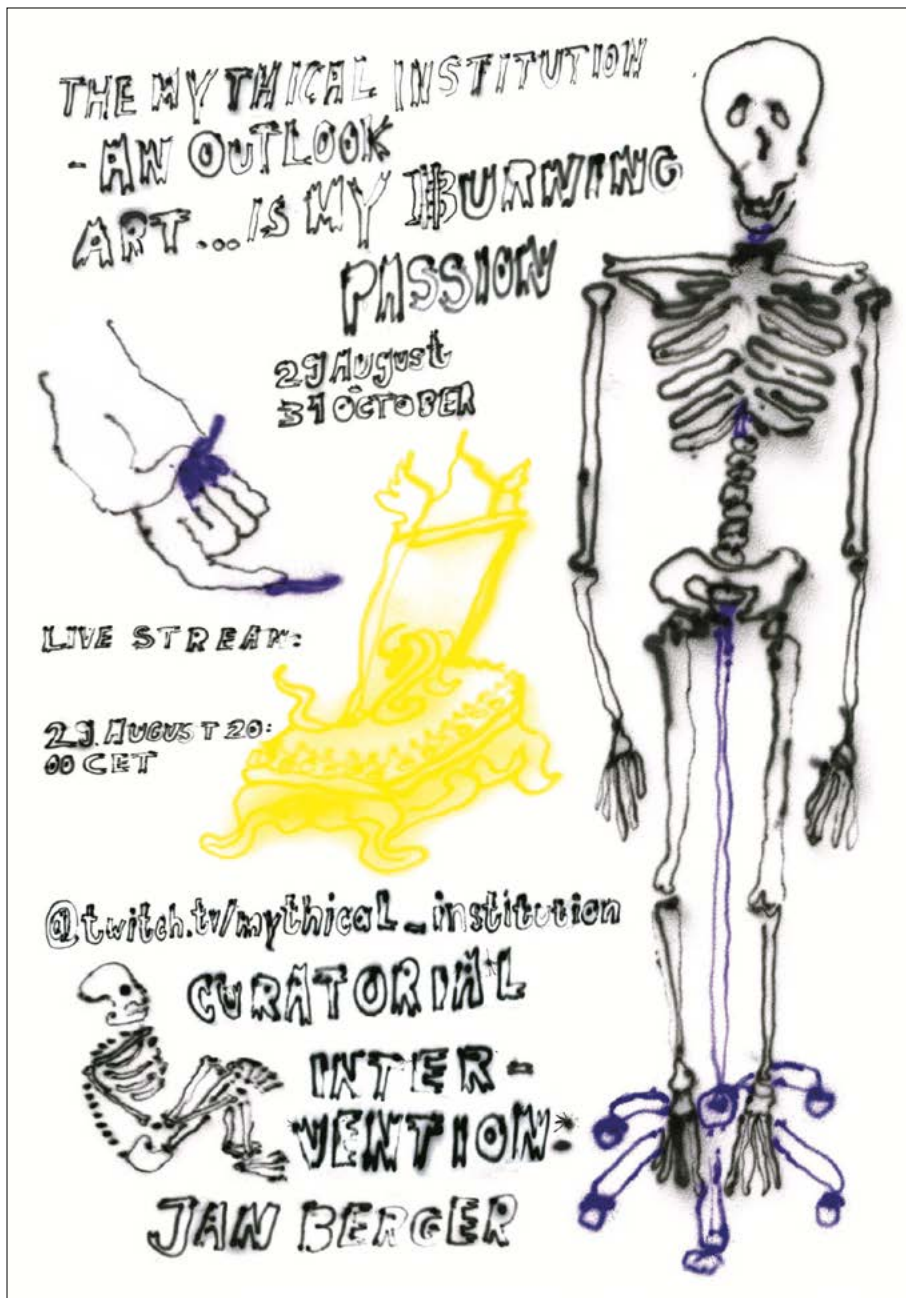 THE MYTHICAL INSTITUTION
- AN OUTLOOK
ART... IS MY BURNING
PASSION
29 August
31 OCTOBER
LIVE STREAM:
29. AUGUST 20:
00 CET
@twitch.tv/mythical_institution
CURATORIAL
INTER-
VENTION:
JAN BERGER